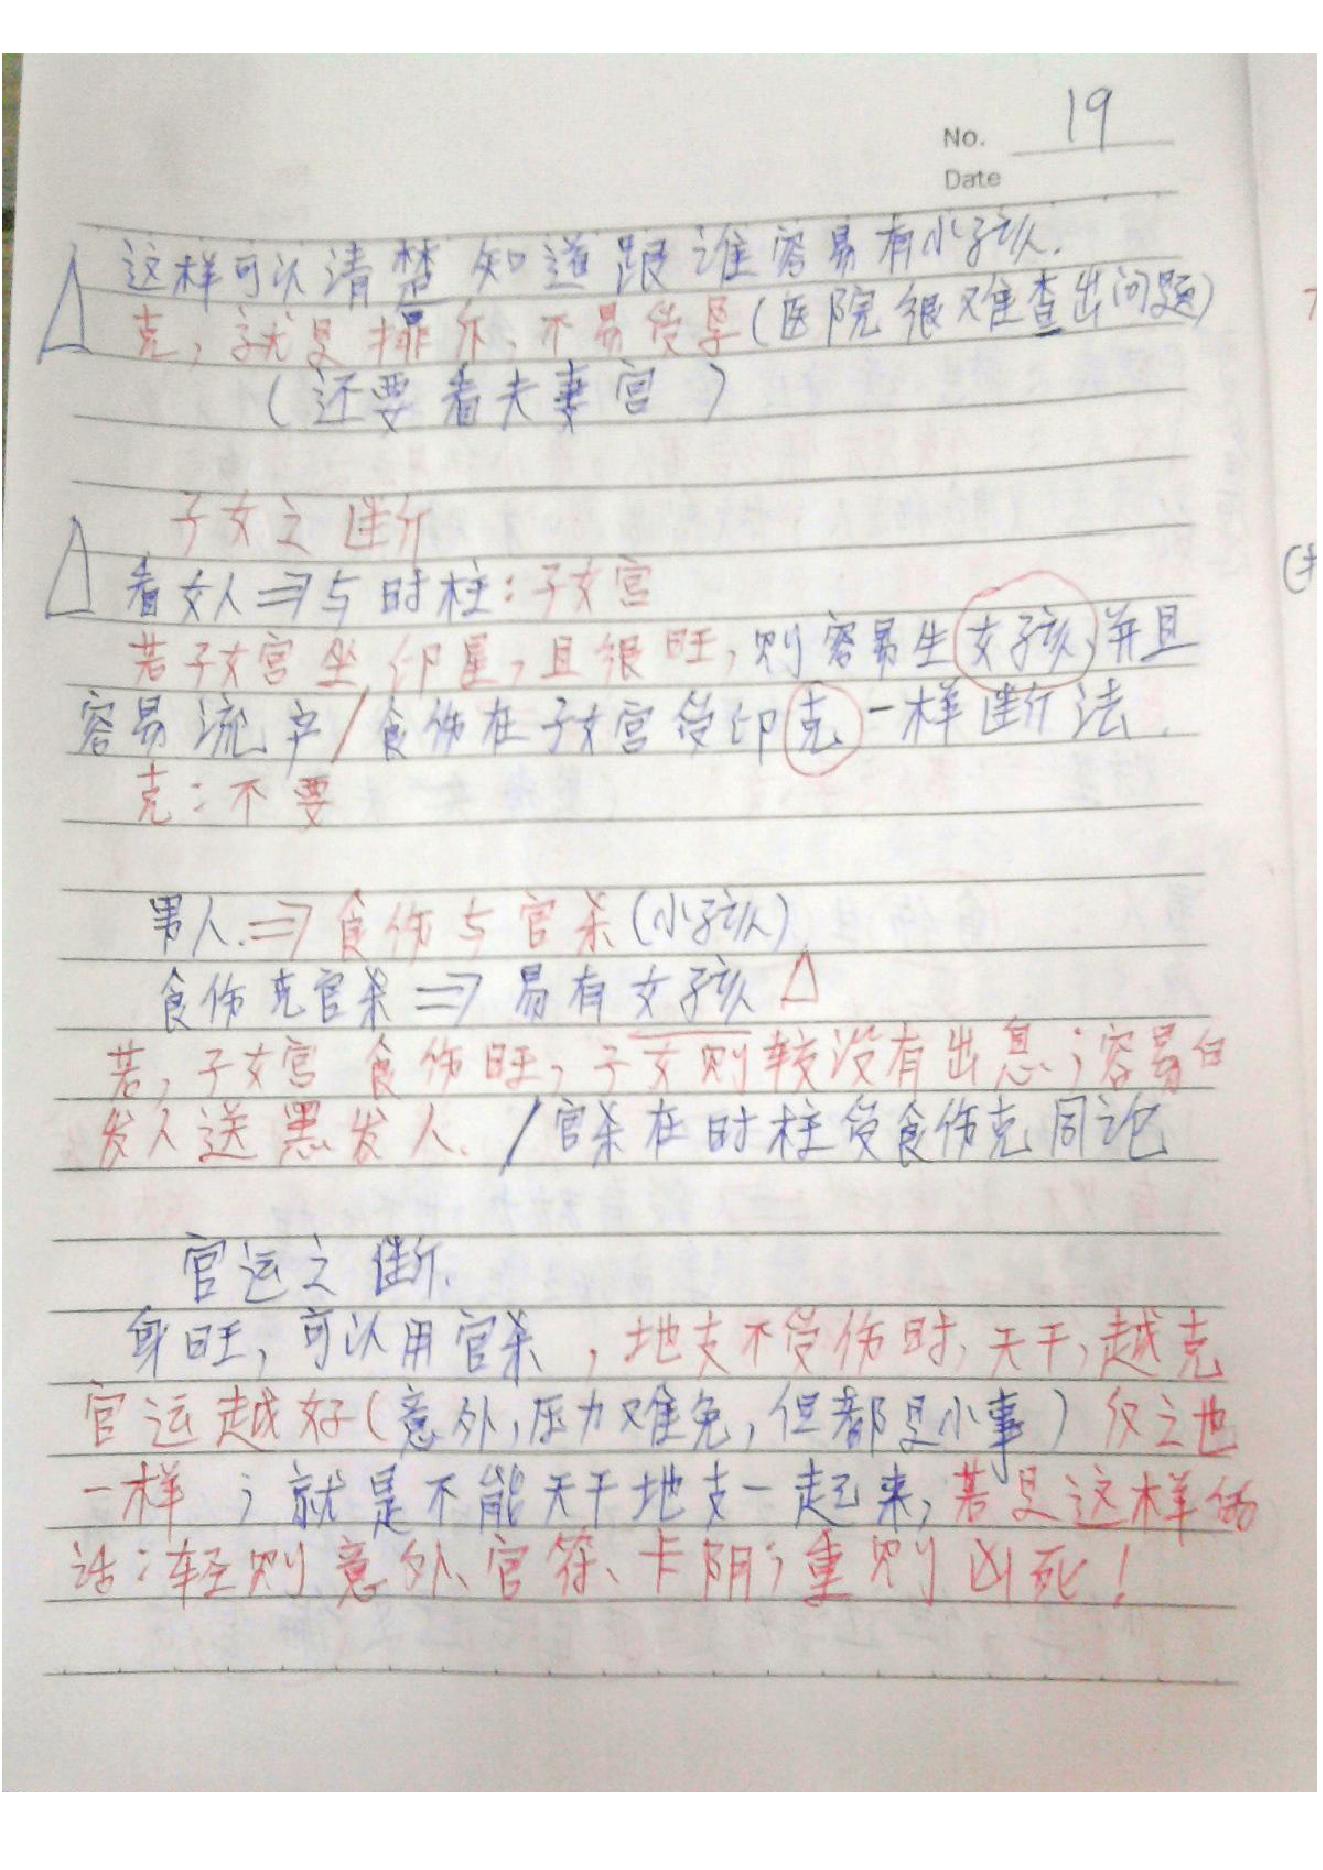 No. 19
Date
这样可以清楚知道跟谁容易有小孩.
克，就是排斥、不易受孕(医院很难查出问题)
(还要看夫妻宫)
子女之断
看女人⇒与时柱:子女宫
若子女宫坐印星,且很旺,则容易生女孩,并且
容易流产/食伤在子女宫受印克一样断法.
克:不要
男人.⇒食伤与官杀(小孩)
食伤克官杀⇒易有女孩△
若,子女宫食伤旺,子女则较没有出息;容易白
发人送黑发人./官杀在时柱受食伤克同论
官运之断.
身旺,可以用官杀,地支不受伤时、天干,越克
官运越好(意外,压力难免,但都是小事)反之也
一样;就是不能天干地支一起来,若是这样的
话:轻则意外、官符、卡阴;重则凶死!